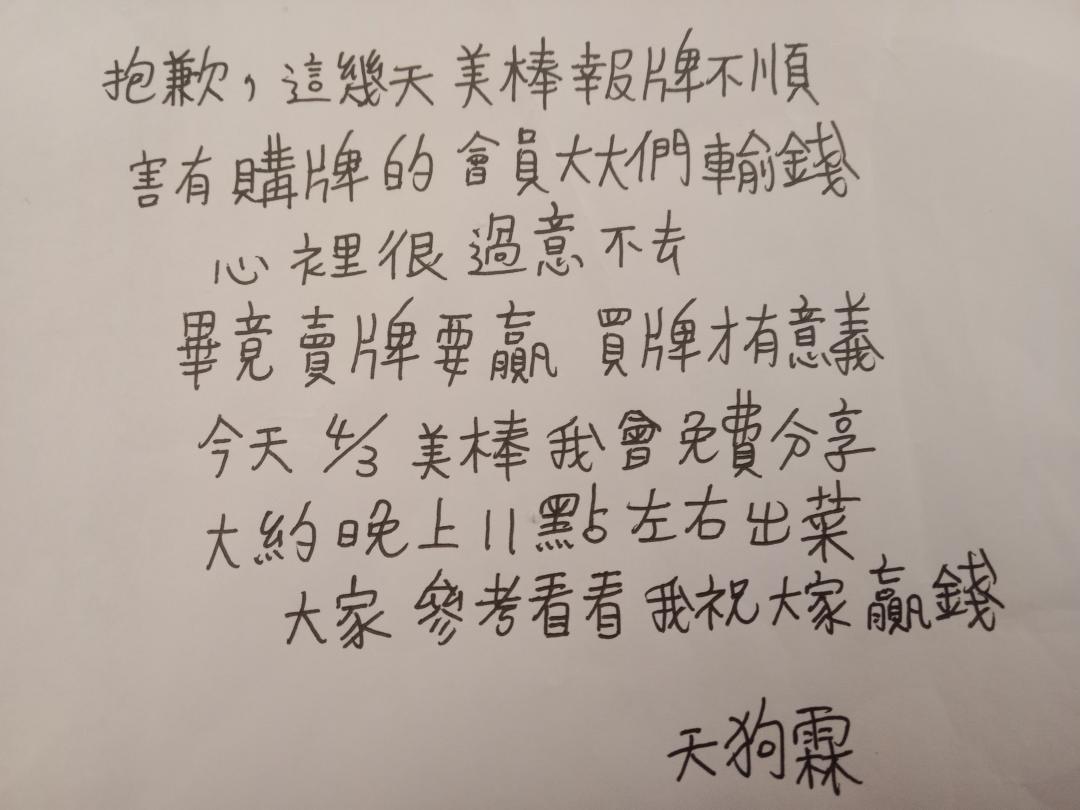 抱歉，這幾天美棒報牌不順
害有購牌的會員大大們輸錢
心裡很過意不去
畢竟賣牌要贏 買牌才有意義
今天 4/3 美棒我會免費分享
大約晚上11點左右出菜
大家參考看看 我祝大家贏錢
天狗霖